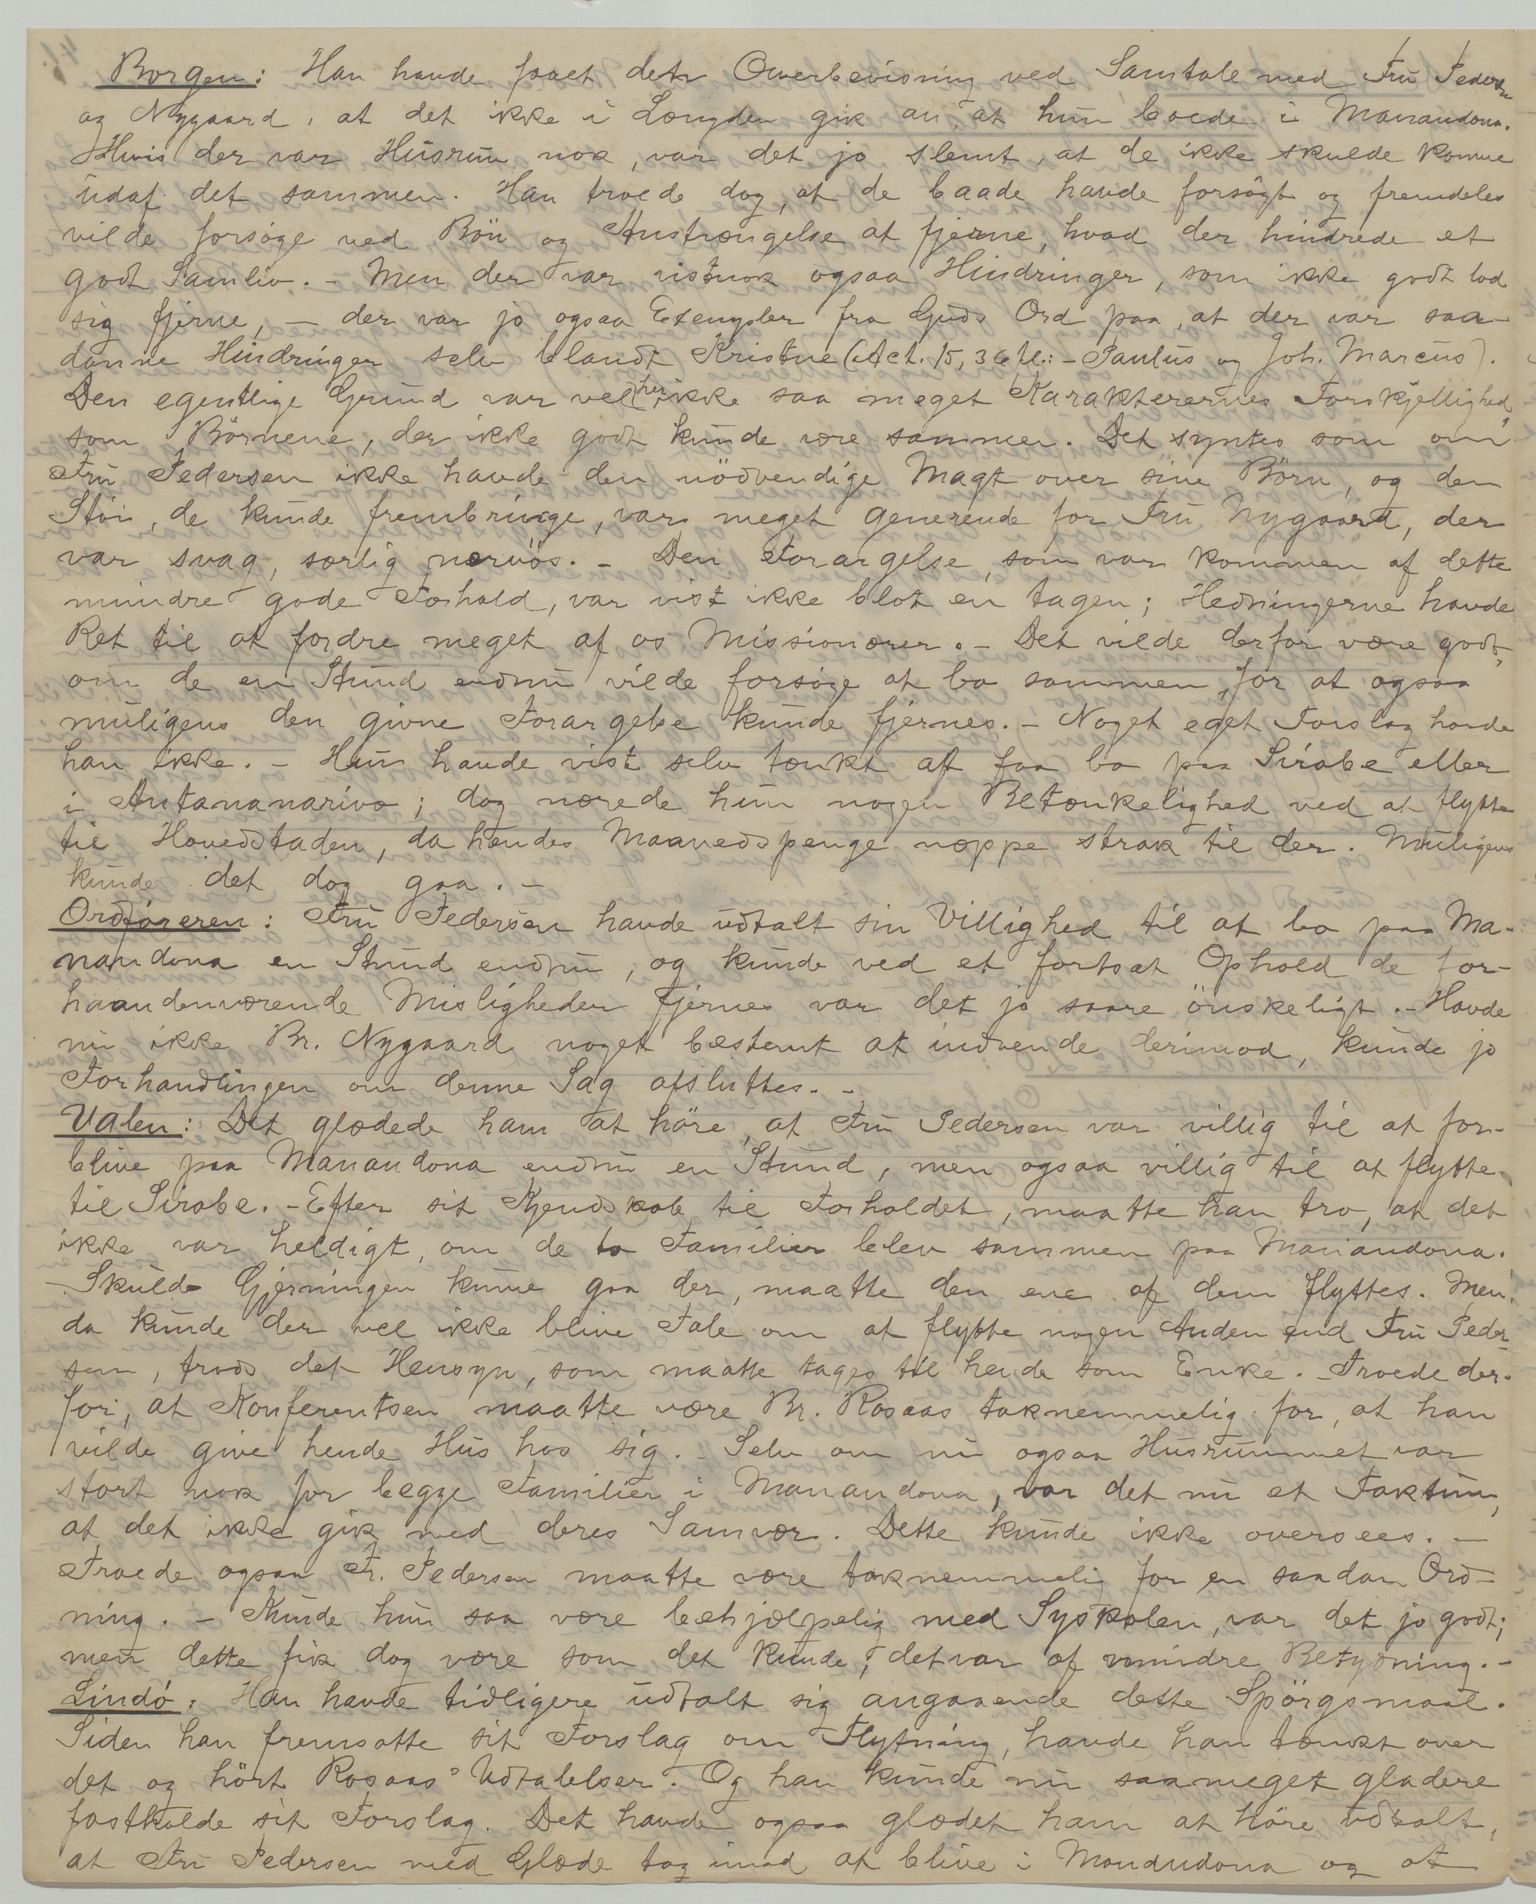 Borgen: Han havde faaet den Overbevisning ved Samtale med Fru Pedersen
og Nygaard, at det ikke i Længden gik an, at hun boede i Manandona.
Hvis der var Husrum nok, var det jo slemt, at de ikke skulde komme
udaf det sammen. Han troede dog, at de baade havde forsøgt og fremdeles
vilde forsøge ved Bön og Anstrængelse at fjerne, hvad der hindrede et
godt Samliv. - Men der var vistnok ogsaa Hindringer, som ikke godt lod
sig fjerne, - der var jo ogsaa Exempler fra Guds Ord paa, at der var saa-
danne Hindringer selv blandt Kristne (Act. 15, 36 fl.: - Paulus og Joh. Marcus).
Den egentlige Grund var vel her ikke saa meget Karakterernes Forskjellighed,
som Börnene, der ikke godt kunde være sammen. Det syntes som om
Fru Pedersen ikke havde den nödvendige Magt over sine Börn, og den
Stöi, de kunde frembringe, var meget generende for Fru Nygaard, der
var svag, særlig nervös. - Den Forargelse, som var kommen af dette
mindre gode Forhold, var vist ikke blot en tagen; Hedningerne havde
Ret til at fordre meget af os Missionærer. - Det vilde derfor være godt,
om de en Stund endnu vilde forsøge at bo sammen, for at ogsaa
muligens den givne Forargelse kunde fjernes. - Noget eget Forslag havde
han ikke. - Hun havde vist selv tænkt at faa bo paa Sirabe eller
i Antananarivo; dog nærede hun nogen Betænkelighed ved at flytte
til Hovedstaden, da hendes Maanedspenge næppe strak til der. Muligens
kunde det dog gaa. -
Ordföreren: Fru Pedersen havde udtalt sin Villighed til at bo paa Ma-
nandona en Stund endnu, og kunde ved et fortsat Ophold de for-
haandenværende Misligheder fjernes var det jo saare önskeligt. - Havde
nu ikke Br. Nygaard noget bestemt at indvende derimod, kunde jo
Forhandlingen om denne Sag afsluttes. -
Valen: Det glædede ham at höre, at Fru Pedersen var villig til at for-
blive paa Manandona endnu en Stund, men ogsaa villig til at flytte
til Sirabe. - Efter sit Kjendskab til Forholdet, maatte han tro, at det
ikke var heldigt, om de to Familier blev sammen paa Manandona.
Skulde Gjerningen kunne gaa der, maatte den ene af dem flyttes. Men
da kunde der vel ikke blive Tale om at flytte nogen Anden end Fru Peder-
sen, trods det Hensyn, som maatte tages til hende som Enke. Troede der-
for, at Konferentsen maatte være Br. Rosaas taknemmelig for, at han
vilde give hende Hus hos sig. - Selv om nu ogsaa Husrummet var
stort nok for begge Familier i Manandona, var det nu et Faktum,
at det ikke gik med deres Samvær. Dette kunde ikke oversees. -
Troede ogsaa Fr. Pedersen maatte være taknemmelig for en saadan Ord-
ning. - Kunde hun saa være behjælpelig med Syskolen, var det jo godt;
men dette fik dog være som det kunde; det var af mindre Betydning. -
Lindö: Han havde tidligere udtalt sig angaaende dette Spörgsmaal.
Siden han fremsatte sit Forslag om Flytning, havde han tænkt over
det og hört Rosaas' Udtalelser. Og han kunde nu saameget gladere
fastholde sit Forslag. Det havde ogsaa glædet ham at höre udtalt,
at Fru Pedersen med Glæde tog imod at blive i Manandona og at